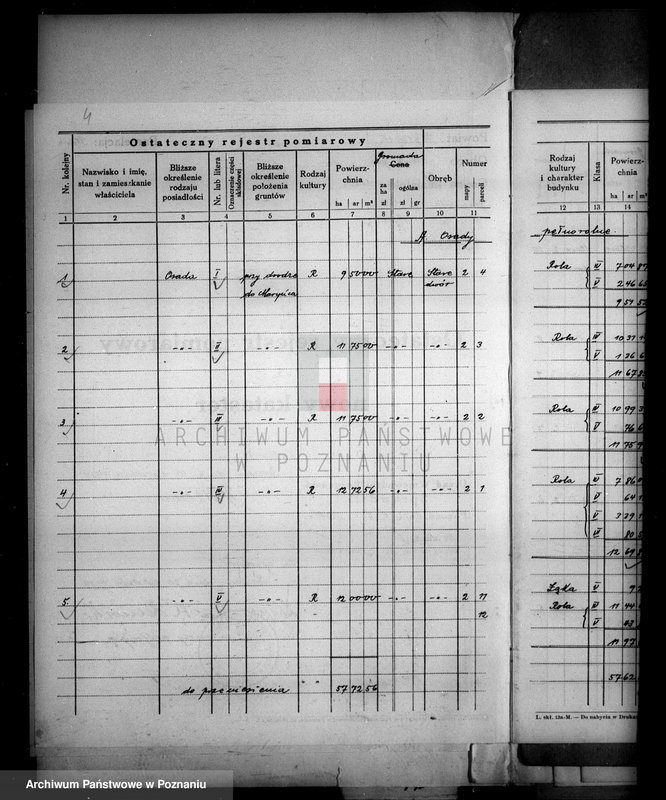 4
Ostateczny rejestr pomiarowy
Nr. kolejny
Nazwisko i imię, stan i zamieszkanie właściciela
Bliższe określenie rodzaju posiadłości
Nr. lub litera
Oznaczenie części składowej
Bliższe określenie położenia gruntów
Rodzaj kultury
Powierzchnia
ha ar m²
Gromada
Cena
za ha zł
ogólna zł gr
Obręb
Numer
mapy
parceli
1 2 3 4 5 6 7 8 9 10 11
A Osady
1 Osada I przy drodze R 9 50 00 Stare Stare 2 4
do Maryńca dwór
2 -"- II -"- R 11 75 00 -"- -"- 2 3
3 -"- III -"- R 11 75 00 -"- -"- 2 2
4 -"- IV -"- R 12 72 56 -"- -"- 2 1
5 -"- V -"- R 12 00 00 -"- -"- 2 11
12
do przeniesienia 57 72 56
Rodzaj kultury i charakter budynku
Klasa
Powierz-
ha ar
12 13 14
pełnorolne
Rola IV 7 04
V 2 46
9 51
Rola
V 1 36
11 67
Rola IV 10 99
V 76
11 75
Rola
V 64
12 69
Łąka V
Rola IV 11 44
V
11 97
57 62
L. skł. 12a-M. — Do nabycia w Druka
ARCHIWUM PAŃSTWOWE
W POZNANIU
Archiwum Państwowe w Poznaniu